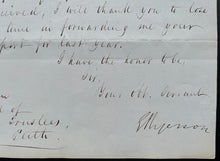 ceived, I will thank you to lose
time in forwarding me your
port for last year.
I have the honor to be,
Sir,
Your obt. Servant
of
Trustees,
Perth.